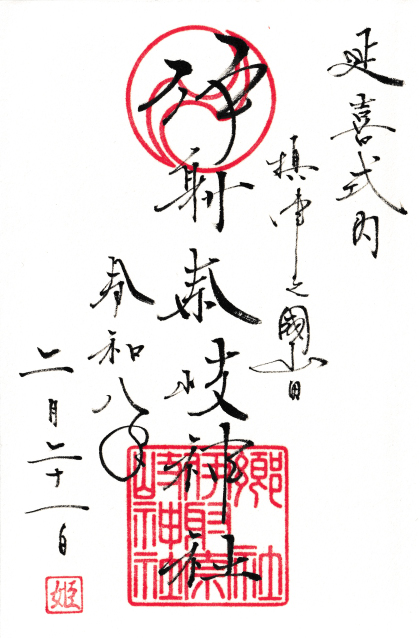 延喜式内
摂津之國山田
伊射奈岐神社
令和八年
二月二十一日
郷社
伊射奈
岐神社
姫